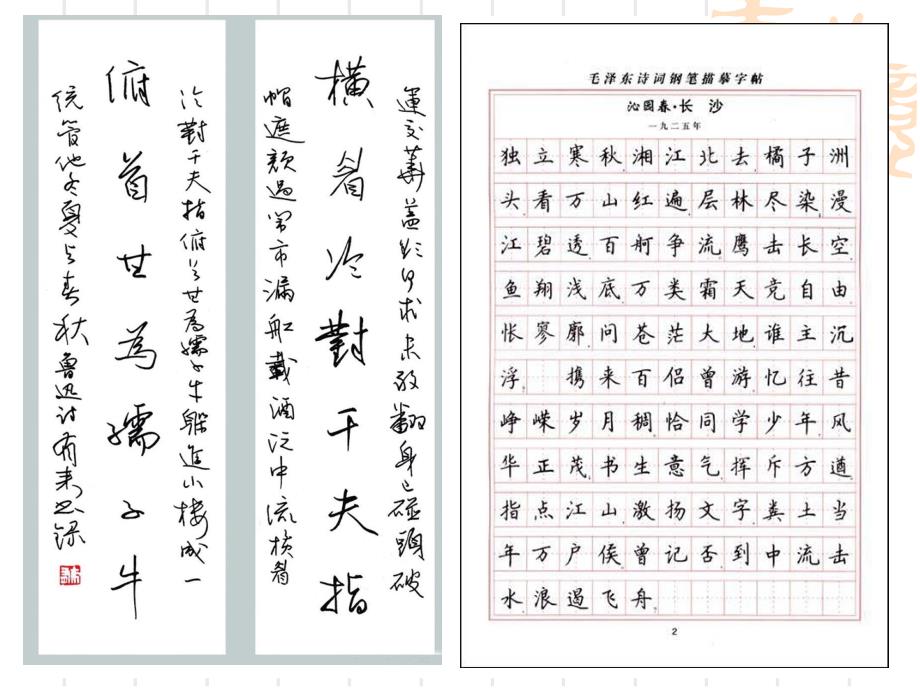 運交華蓋欲何求未敢翻身已碰頭破
橫眉冷對千夫指
帽遮顏過鬧市漏船載酒泛中流橫眉
冷對千夫指俯首甘為孺子牛躲進小樓成一
俯首甘為孺子牛
统管他冬夏与春秋鲁迅诗
毛泽东诗词钢笔描摹字帖
沁园春·长 沙
一九二五年
独立寒秋湘江北去橘子洲
头看万山红遍层林尽染漫
江碧透百舸争流鹰击长空
鱼翔浅底万类霜天竞自由
怅寥廓问苍茫大地谁主沉
浮 携来百侣曾游忆往昔
峥嵘岁月稠恰同学少年风
华正茂书生意气挥斥方遒
指点江山激扬文字粪土当
年万户侯曾记否到中流击
水浪遏飞舟
2